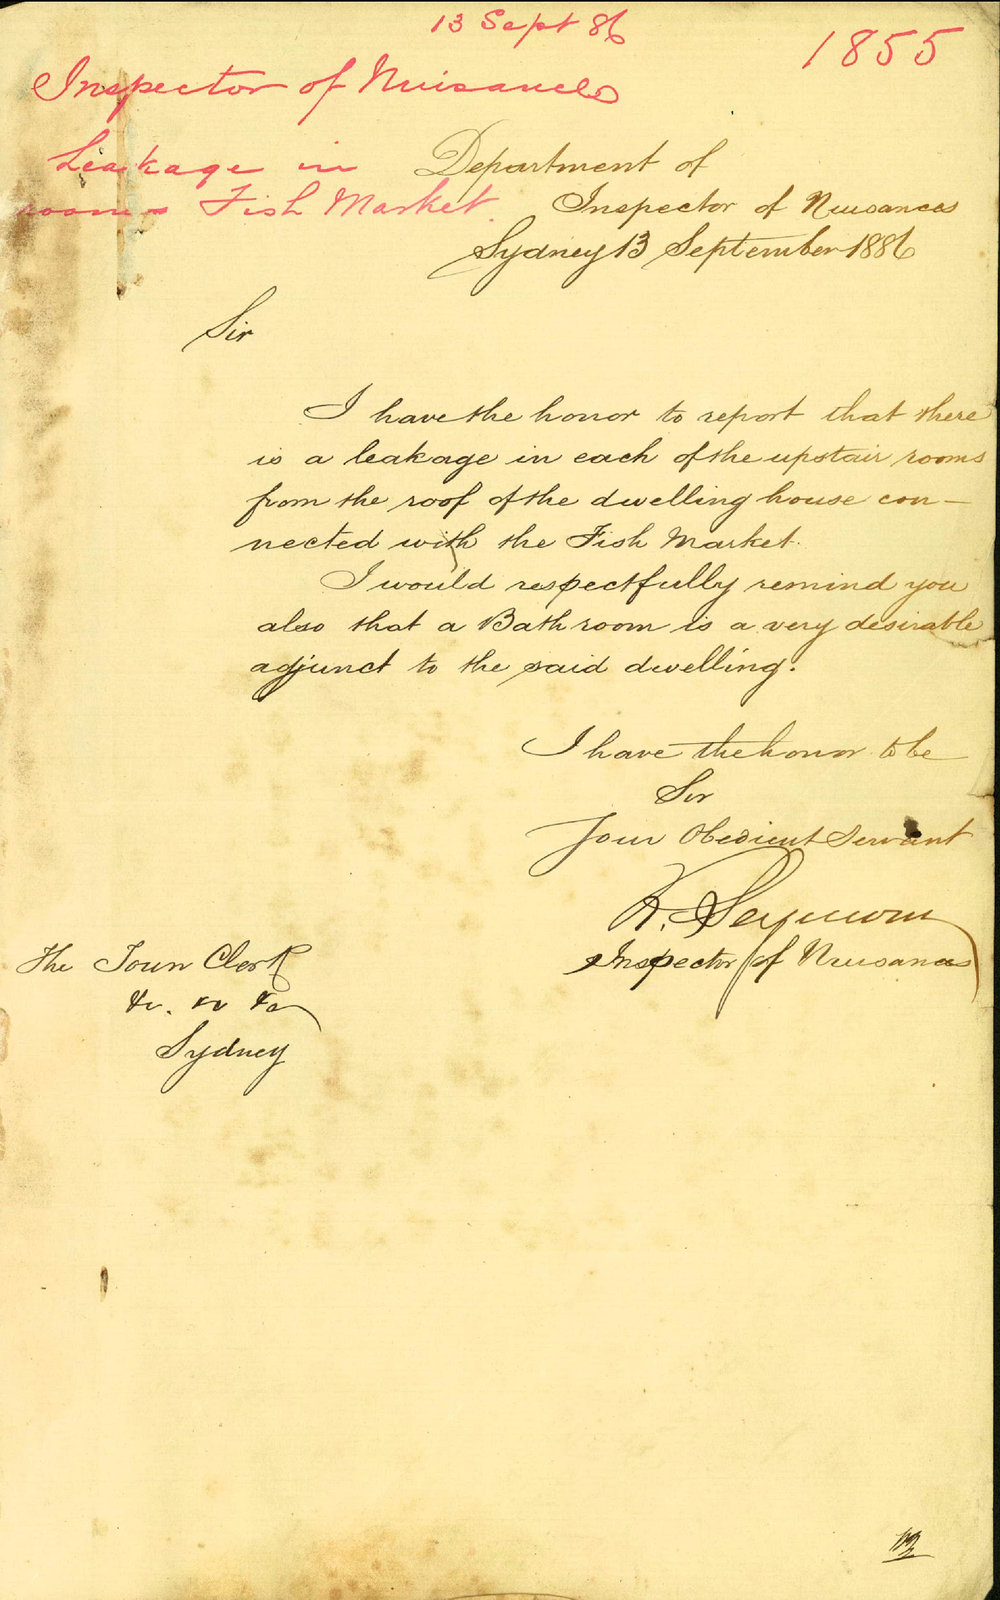 13 Sept 86
1855
Inspector of Nuisances
Leakage in
rooms Fish Market.
Department of
Inspector of Nuisances
Sydney 13 September 1886
Sir
I have the honor to report that there
is a leakage in each of the upstair rooms
from the roof of the dwelling house con-
nected with the Fish Market.
I would respectfully remind you
also that a Bath room is a very desirable
adjunct to the said dwelling.
I have the honor to be
Sir
Your Obedient Servant
R. Seymour
Inspector of Nuisances
The Town Clerk
&c. &c &c
Sydney